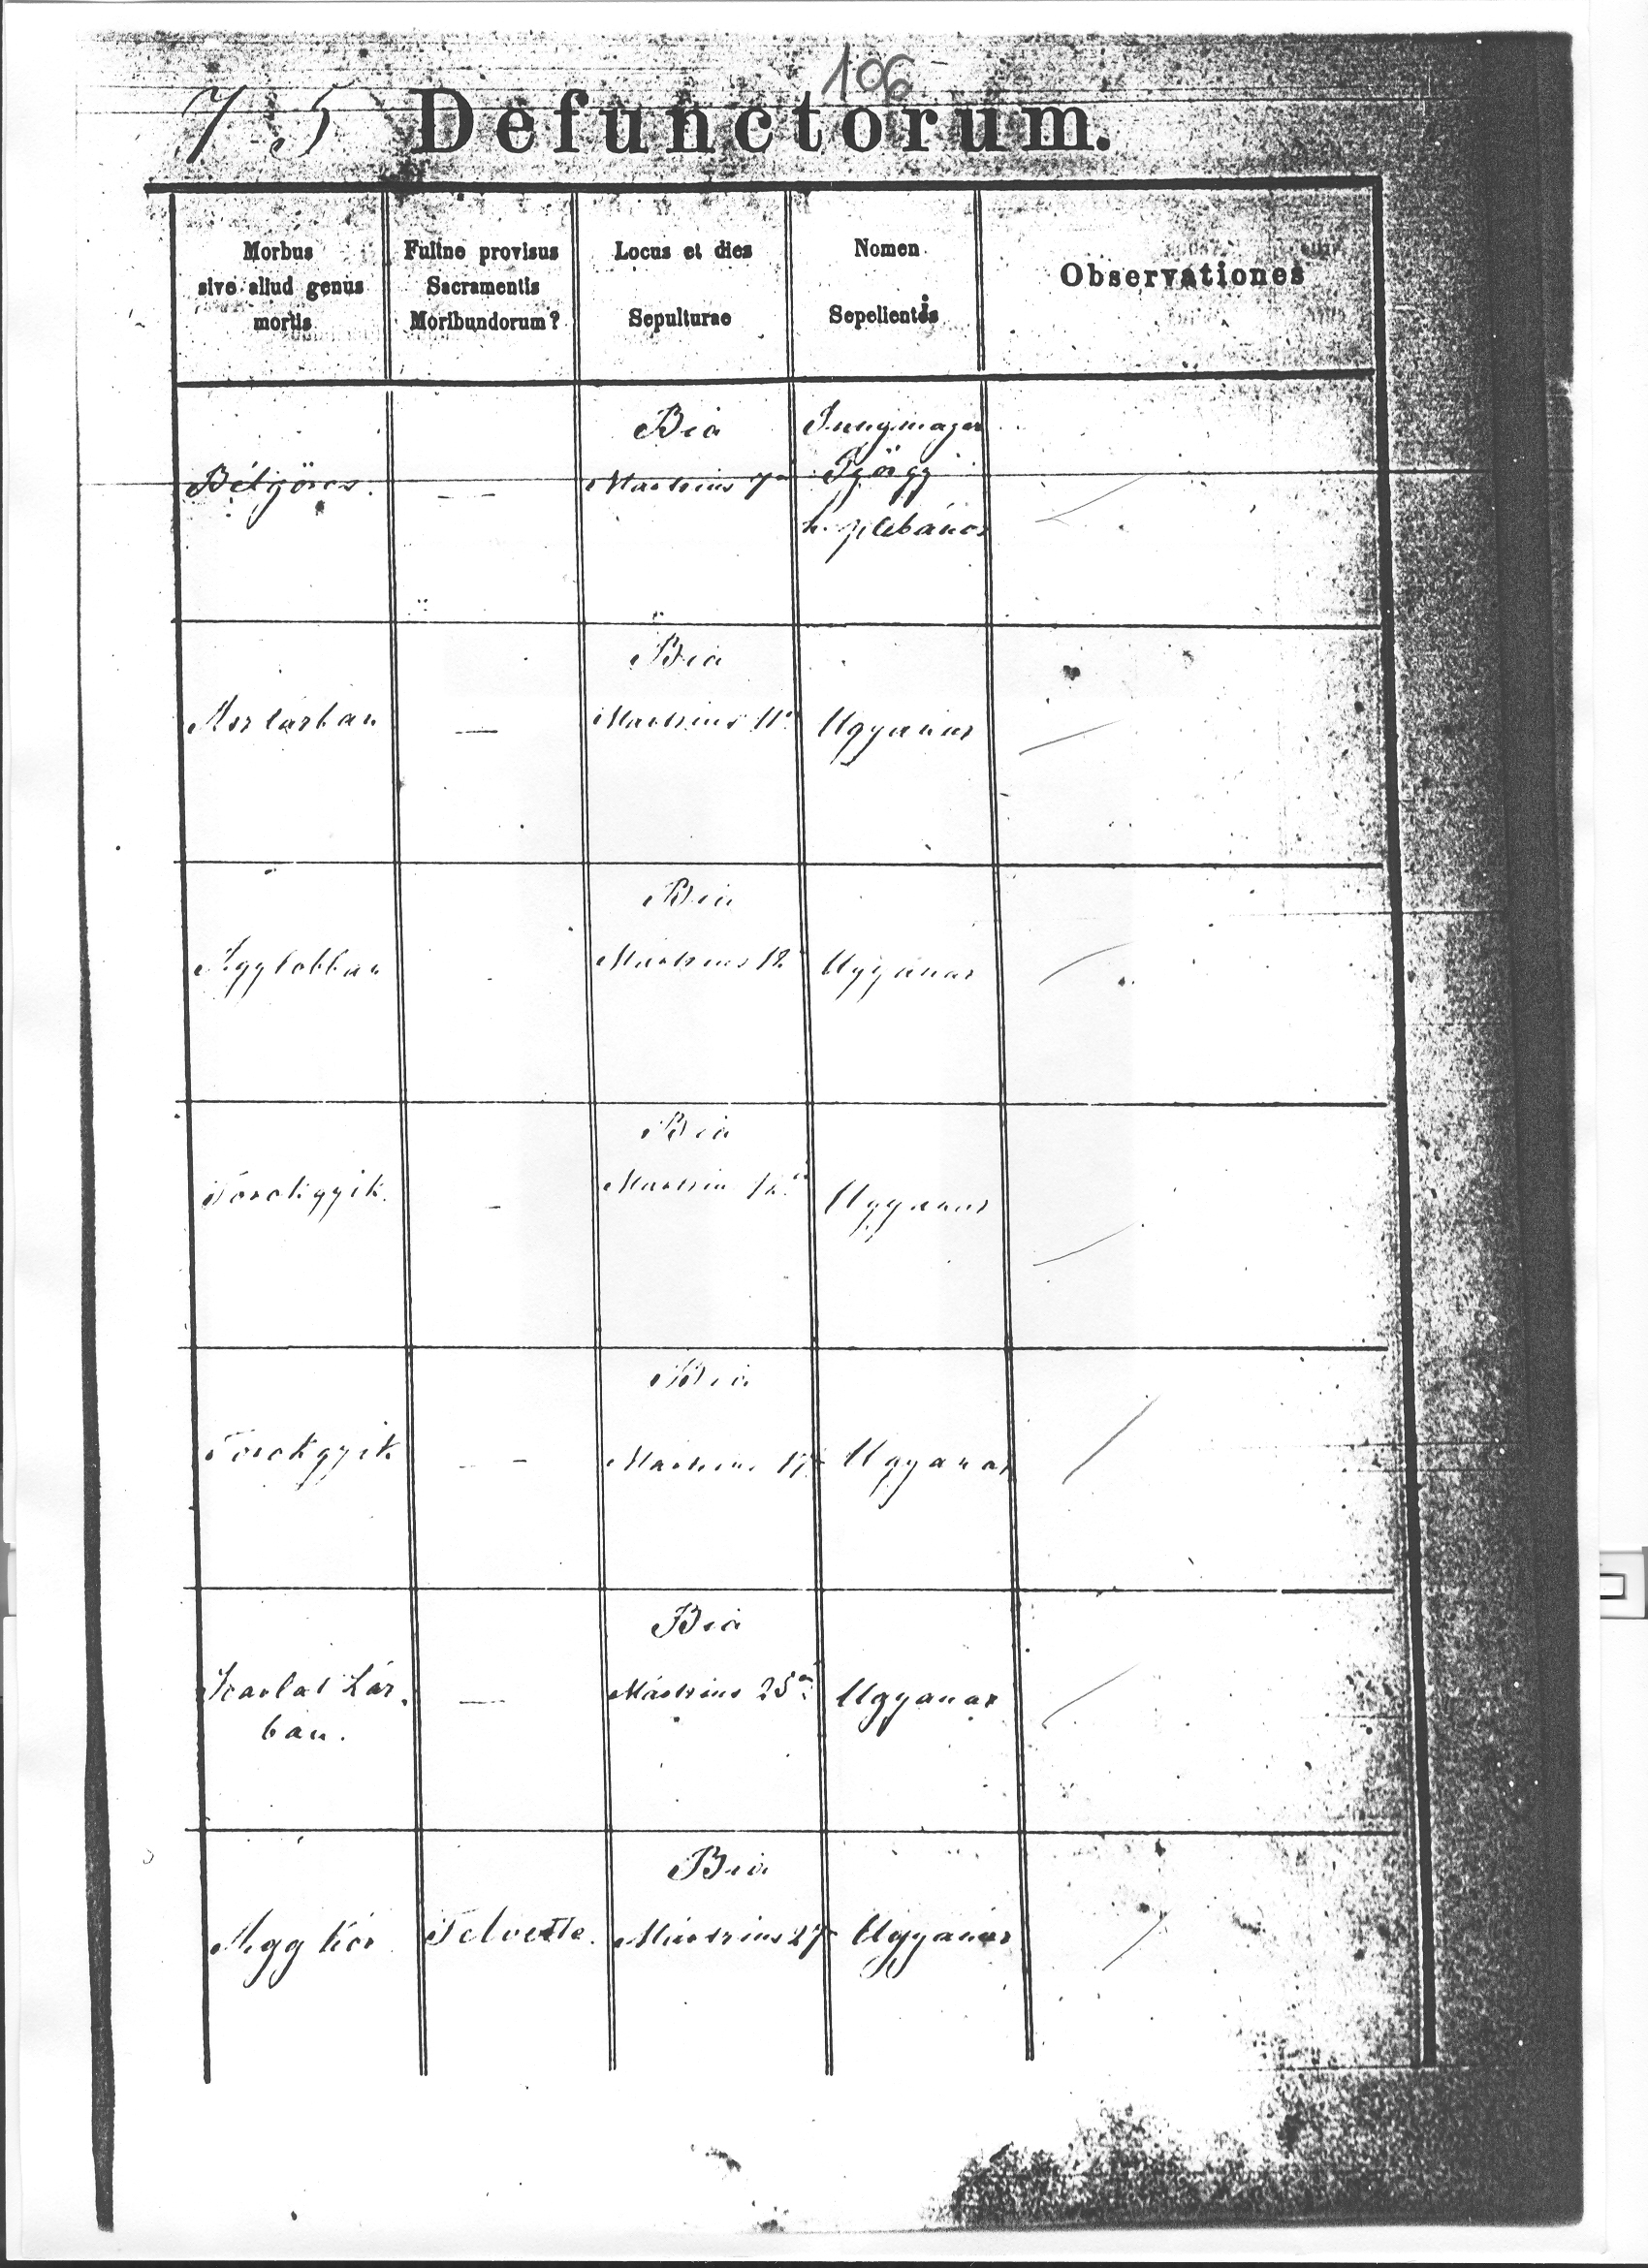 106
75 Defunctorum.
Morbus
sive aliud genus
mortis
Fuitne provisus
Sacramentis
Moribundorum?
Locus et dies
Sepulturae
Nomen
Sepelientis
Observationes
Bélgörcs.
—
Bia
Martzius 7én
Jungmajer
György
h. plebános
—
Bia
Martzius 11
Ugyanaz
Agglobban
Bia
Martzius 12
Ugyanaz
Torokgyik.
—
Bia
Ugyanaz
Torokgyik
—
Bia
Martzius 17
Ugyanaz
Skarlat Láz.
ban.
—
Bia
Mártzius 25én
Ugyanaz
Aggkór
Felvette.
Bia
Mártzius 27
Ugyanaz